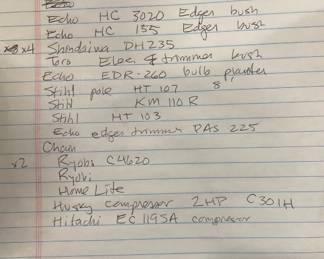 Echo HC 3020 Edger bush
Echo HC 155 Edger bush
x4 Shindaiwa DH235
Toro Elec trimmer bush
Echo EDR-260 bulb planter
Stihl pole HT 107 8'
Stihl KM 110 R
Stihl HT 103
Echo edger trimmer PAS 225
Chain
x2 Ryobi C4620
Ryobi
Home Lite
Husky compressor 2HP C301H
Hitachi EC119SA compressor